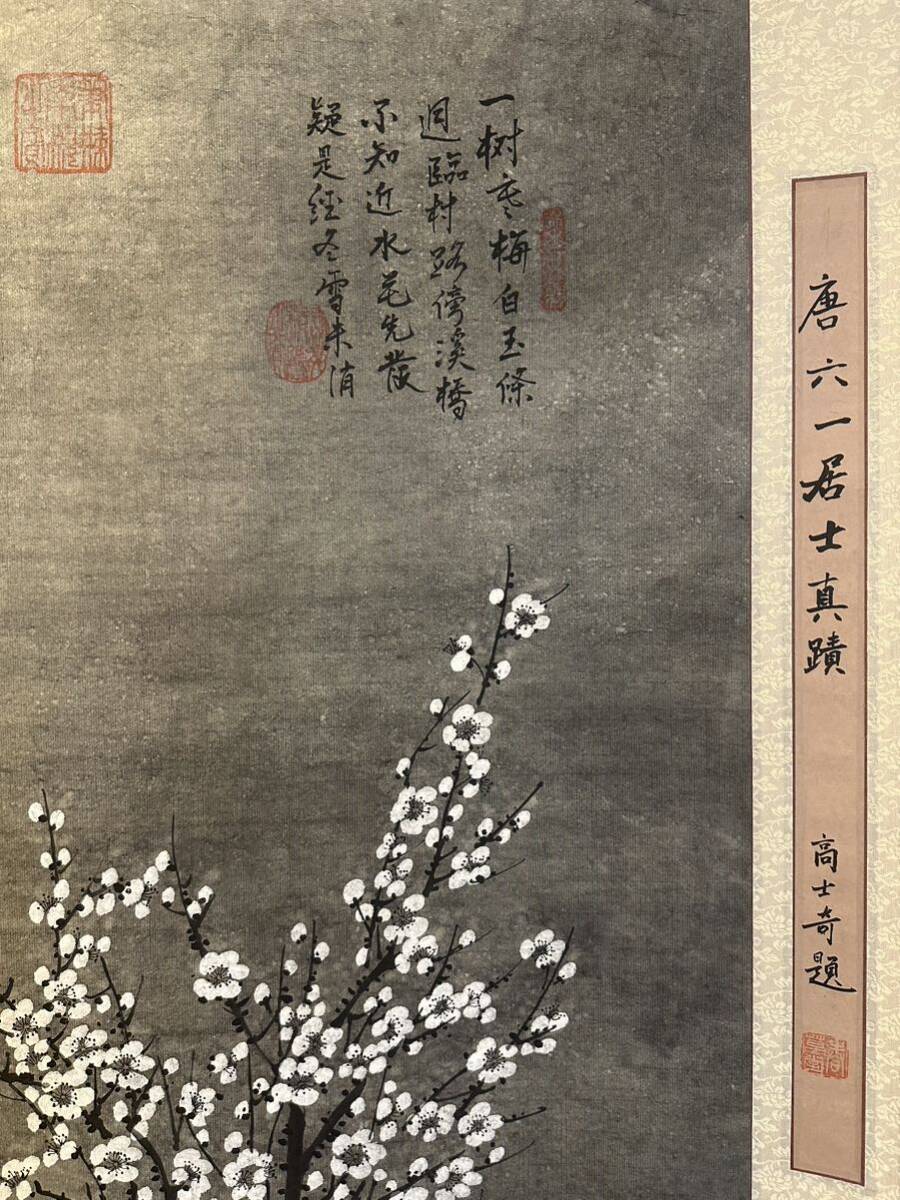 唐六一居士真蹟
高士奇題
一树寒梅白玉條
迥臨村路傍溪橋
不知近水花先發
疑是經冬雪未消